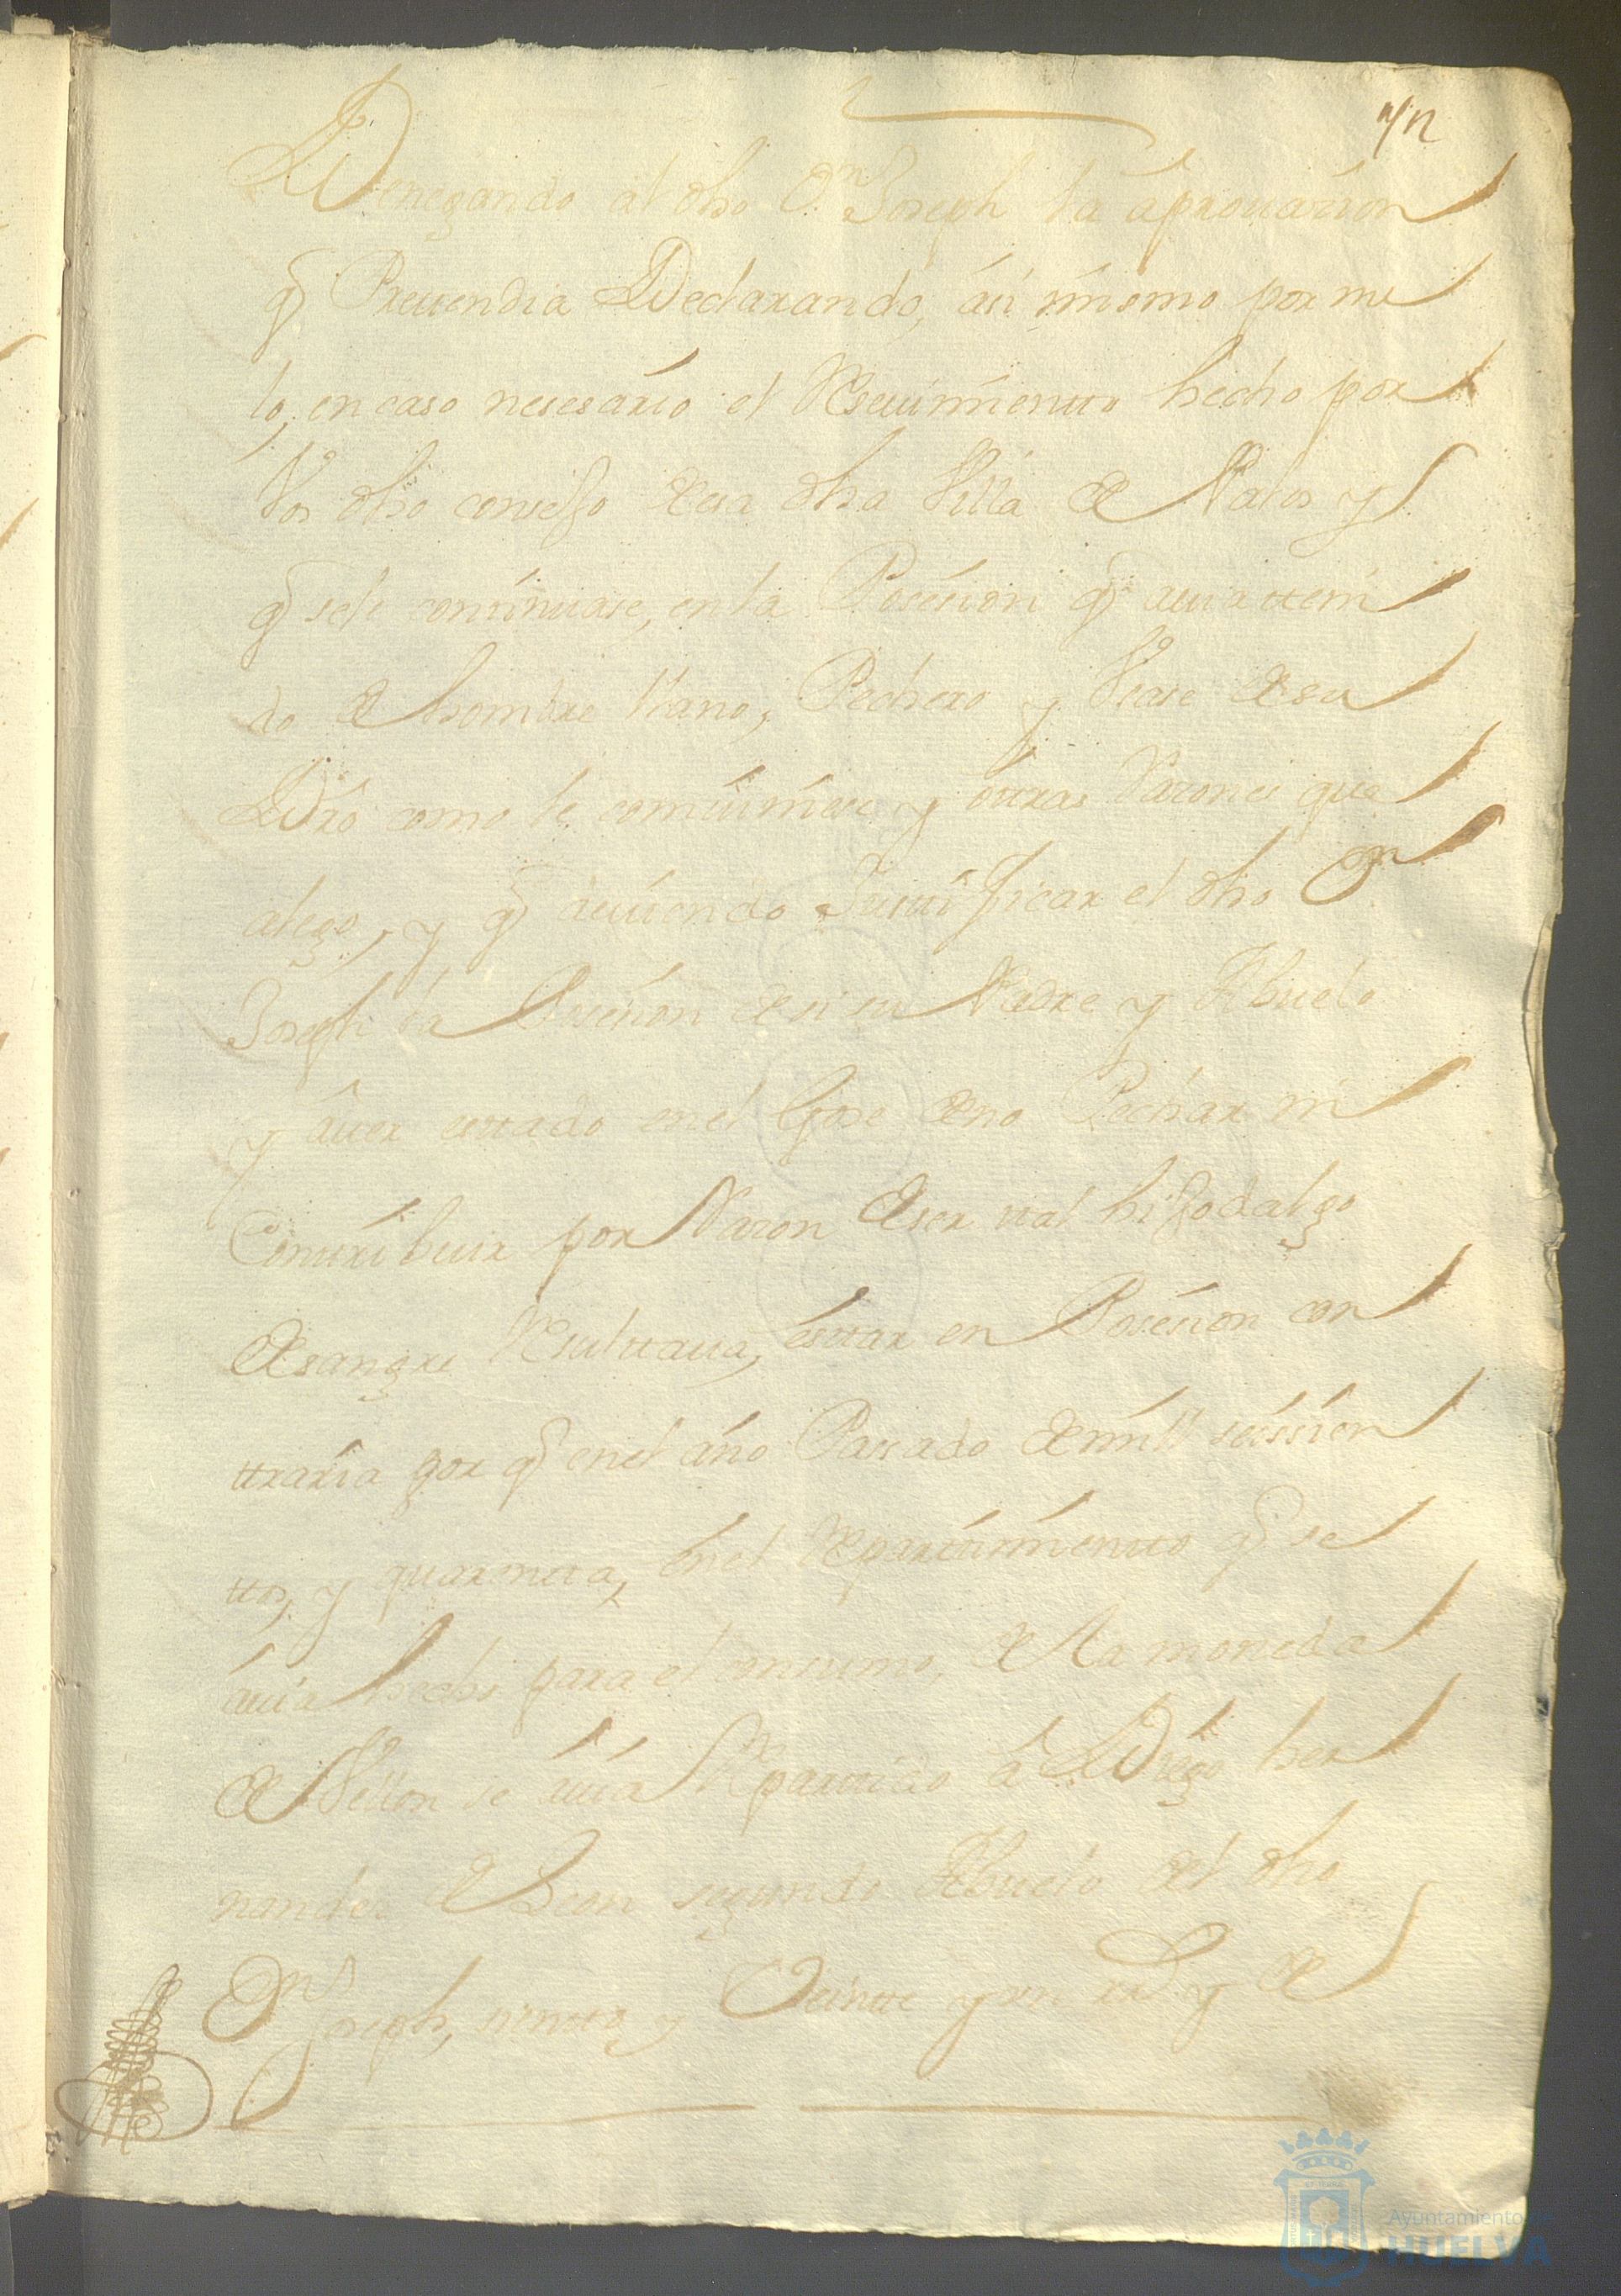 Denegando al dho Dn Joseph la aprouazion
q Pretendia Declarando, asi mismo por nu
lo, en caso nesesario el Reseuimiento hecho por
Vos dho consejo desa dha Villa de Palos y
q sele continuase, en la Posesion q auia teni
do de hombre llano, Pechero y Vsase de su
Dro como le combiniese y otras Razones que
alego, y q deuiendo Justificar el dho Dn
Joseph la Posesion de si su Padre y Abuelo
y auer estado en el Gose de no Pechar ni
Contribuir por Razon de ser tal hijodalgo
de sangre Resultaua, estar en Posesion con
traria por q en el año Passado de mill seissien
tos, y quarenta, en el Repartimiento q se
auia hecho para el consumo, de la moneda
de Vellon se auia Repartido a Diego her
nandes de Leon segundo Abuelo del dho
Dn Joseph, siento y Veinte y un rs y de
Ayuntamiento de
HUELVA